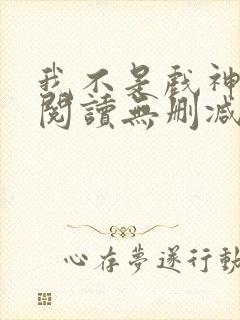 我不是戲神
閱讀無刪減
心存夢遂行動